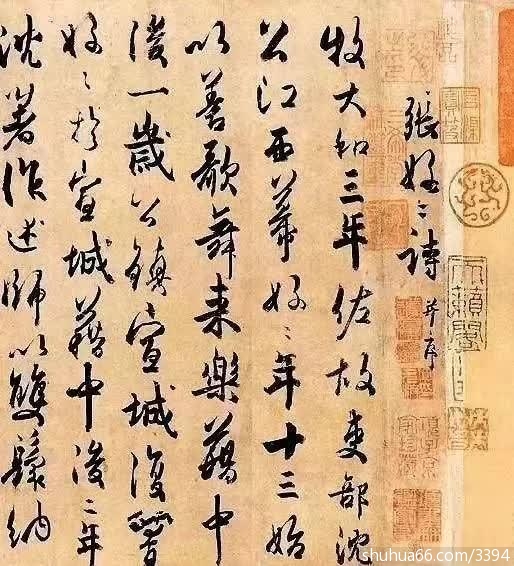 張好〻詩 并序
牧大和三年佐故吏部沈
公江西幕好〻年十三始
以善歌舞来樂籍中
後一歲公鎮宣城復置
好〻於宣城籍中後二年
沈著作述師以雙鬟納
天籟閣
shuhua66.com/3394